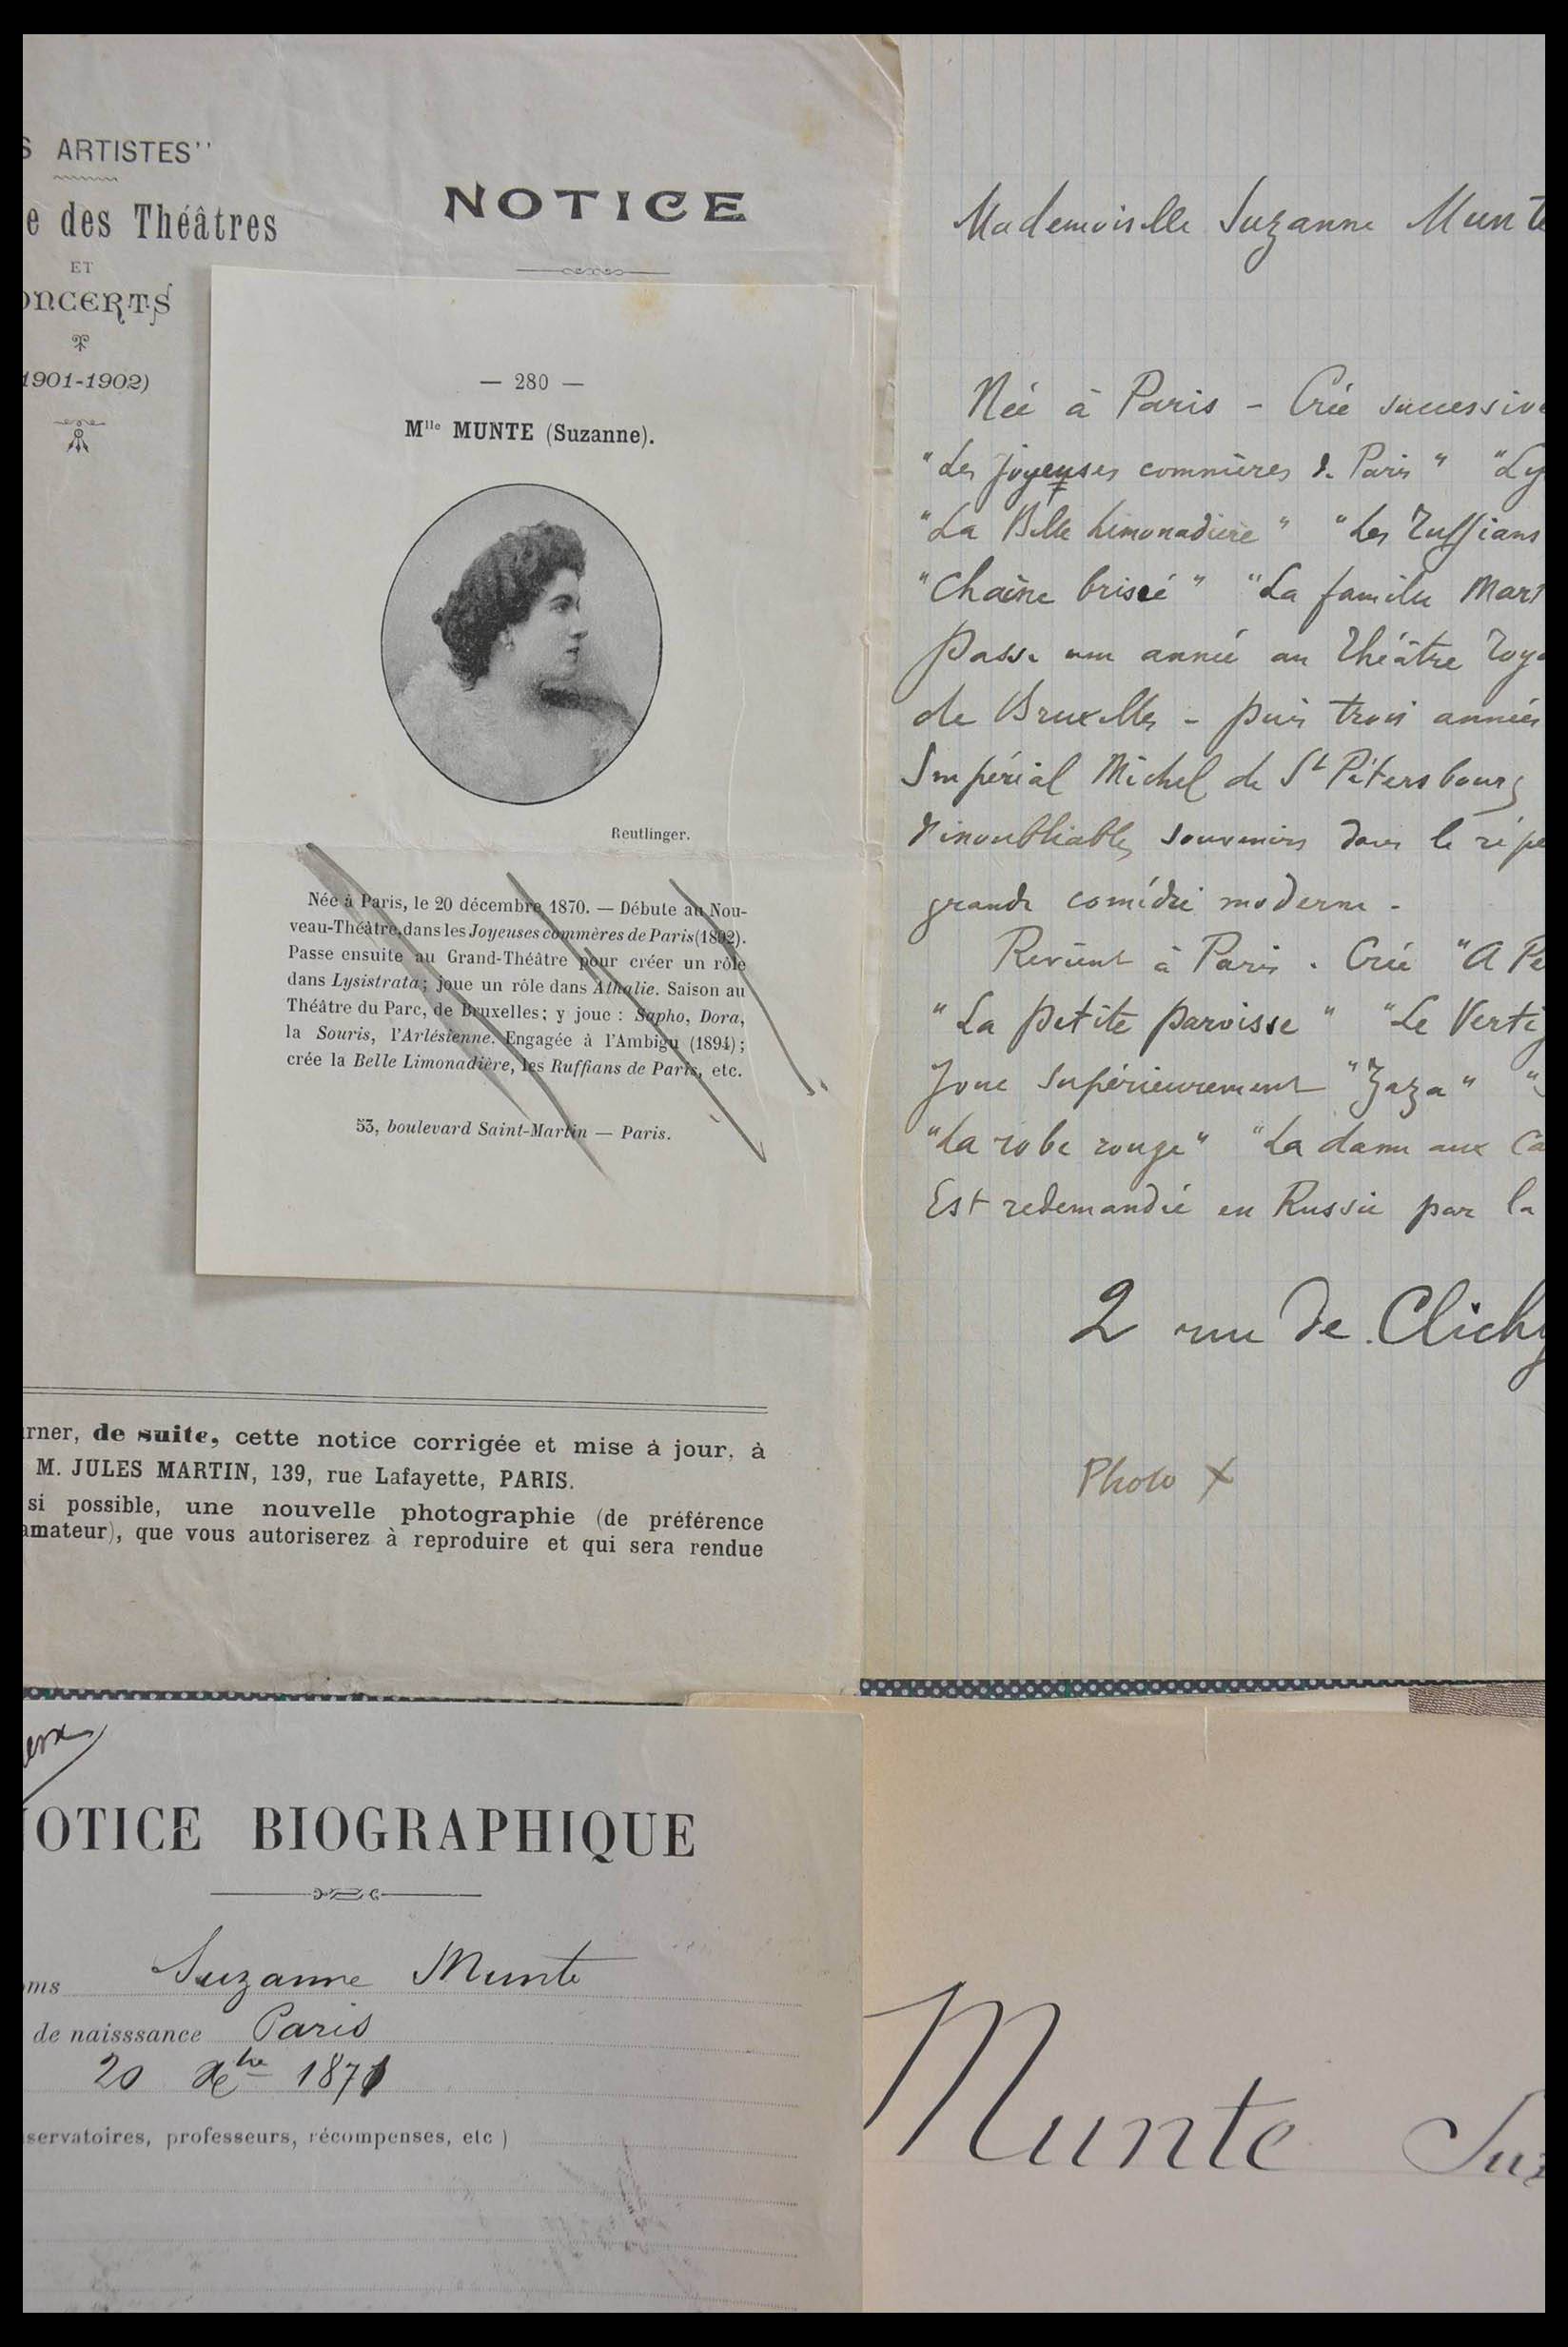 S ARTISTES''
e des Théâtres
ET
ONCERTS
1901-1902)
NOTICE
— 280 —
Mlle MUNTE (Suzanne).
Reutlinger.
Née à Paris, le 20 décembre 1870. — Débute au Nou-
veau-Théâtre, dans les Joyeuses commères de Paris (1892).
Passe ensuite au Grand-Théâtre pour créer un rôle
dans Lysistrata; joue un rôle dans Athalie. Saison au
Théâtre du Parc, de Bruxelles; y joue : Sapho, Dora,
la Souris, l'Arlésienne. Engagée à l'Ambigu (1894);
crée la Belle Limonadière, les Ruffians de Paris, etc.
53, boulevard Saint-Martin — Paris.
rner, de suite, cette notice corrigée et mise à jour, à
M. JULES MARTIN, 139, rue Lafayette, PARIS.
si possible, une nouvelle photographie (de préférence
amateur), que vous autoriserez à reproduire et qui sera rendue
Mademoiselle Suzanne Munte
Née à Paris - Crée successive
"Les joyeuses commères de Paris" "Ly
"La Belle Limonadière" "Les Ruffians
"Chaîne brisée" "La famille Mart
Passe une année au Théâtre Roya
de Bruxelles - puis trois années
Impérial Michel de St Pétersbourg
d'inoubliables souvenirs dans le répe
grande comédie moderne -
Revient à Paris. Crée "A Pe
"La petite paroisse" "Le Verti
Joue supérieurement "Zaza" "
"La robe rouge" "La dame aux Ca
Est redemandée en Russie par la
2 rue de Clichy
Photo X
NOTICE BIOGRAPHIQUE
oms Suzanne Munte
de naisssance Paris
20 Xbre 1871
servatoires, professeurs, récompenses, etc )
Munte Suz